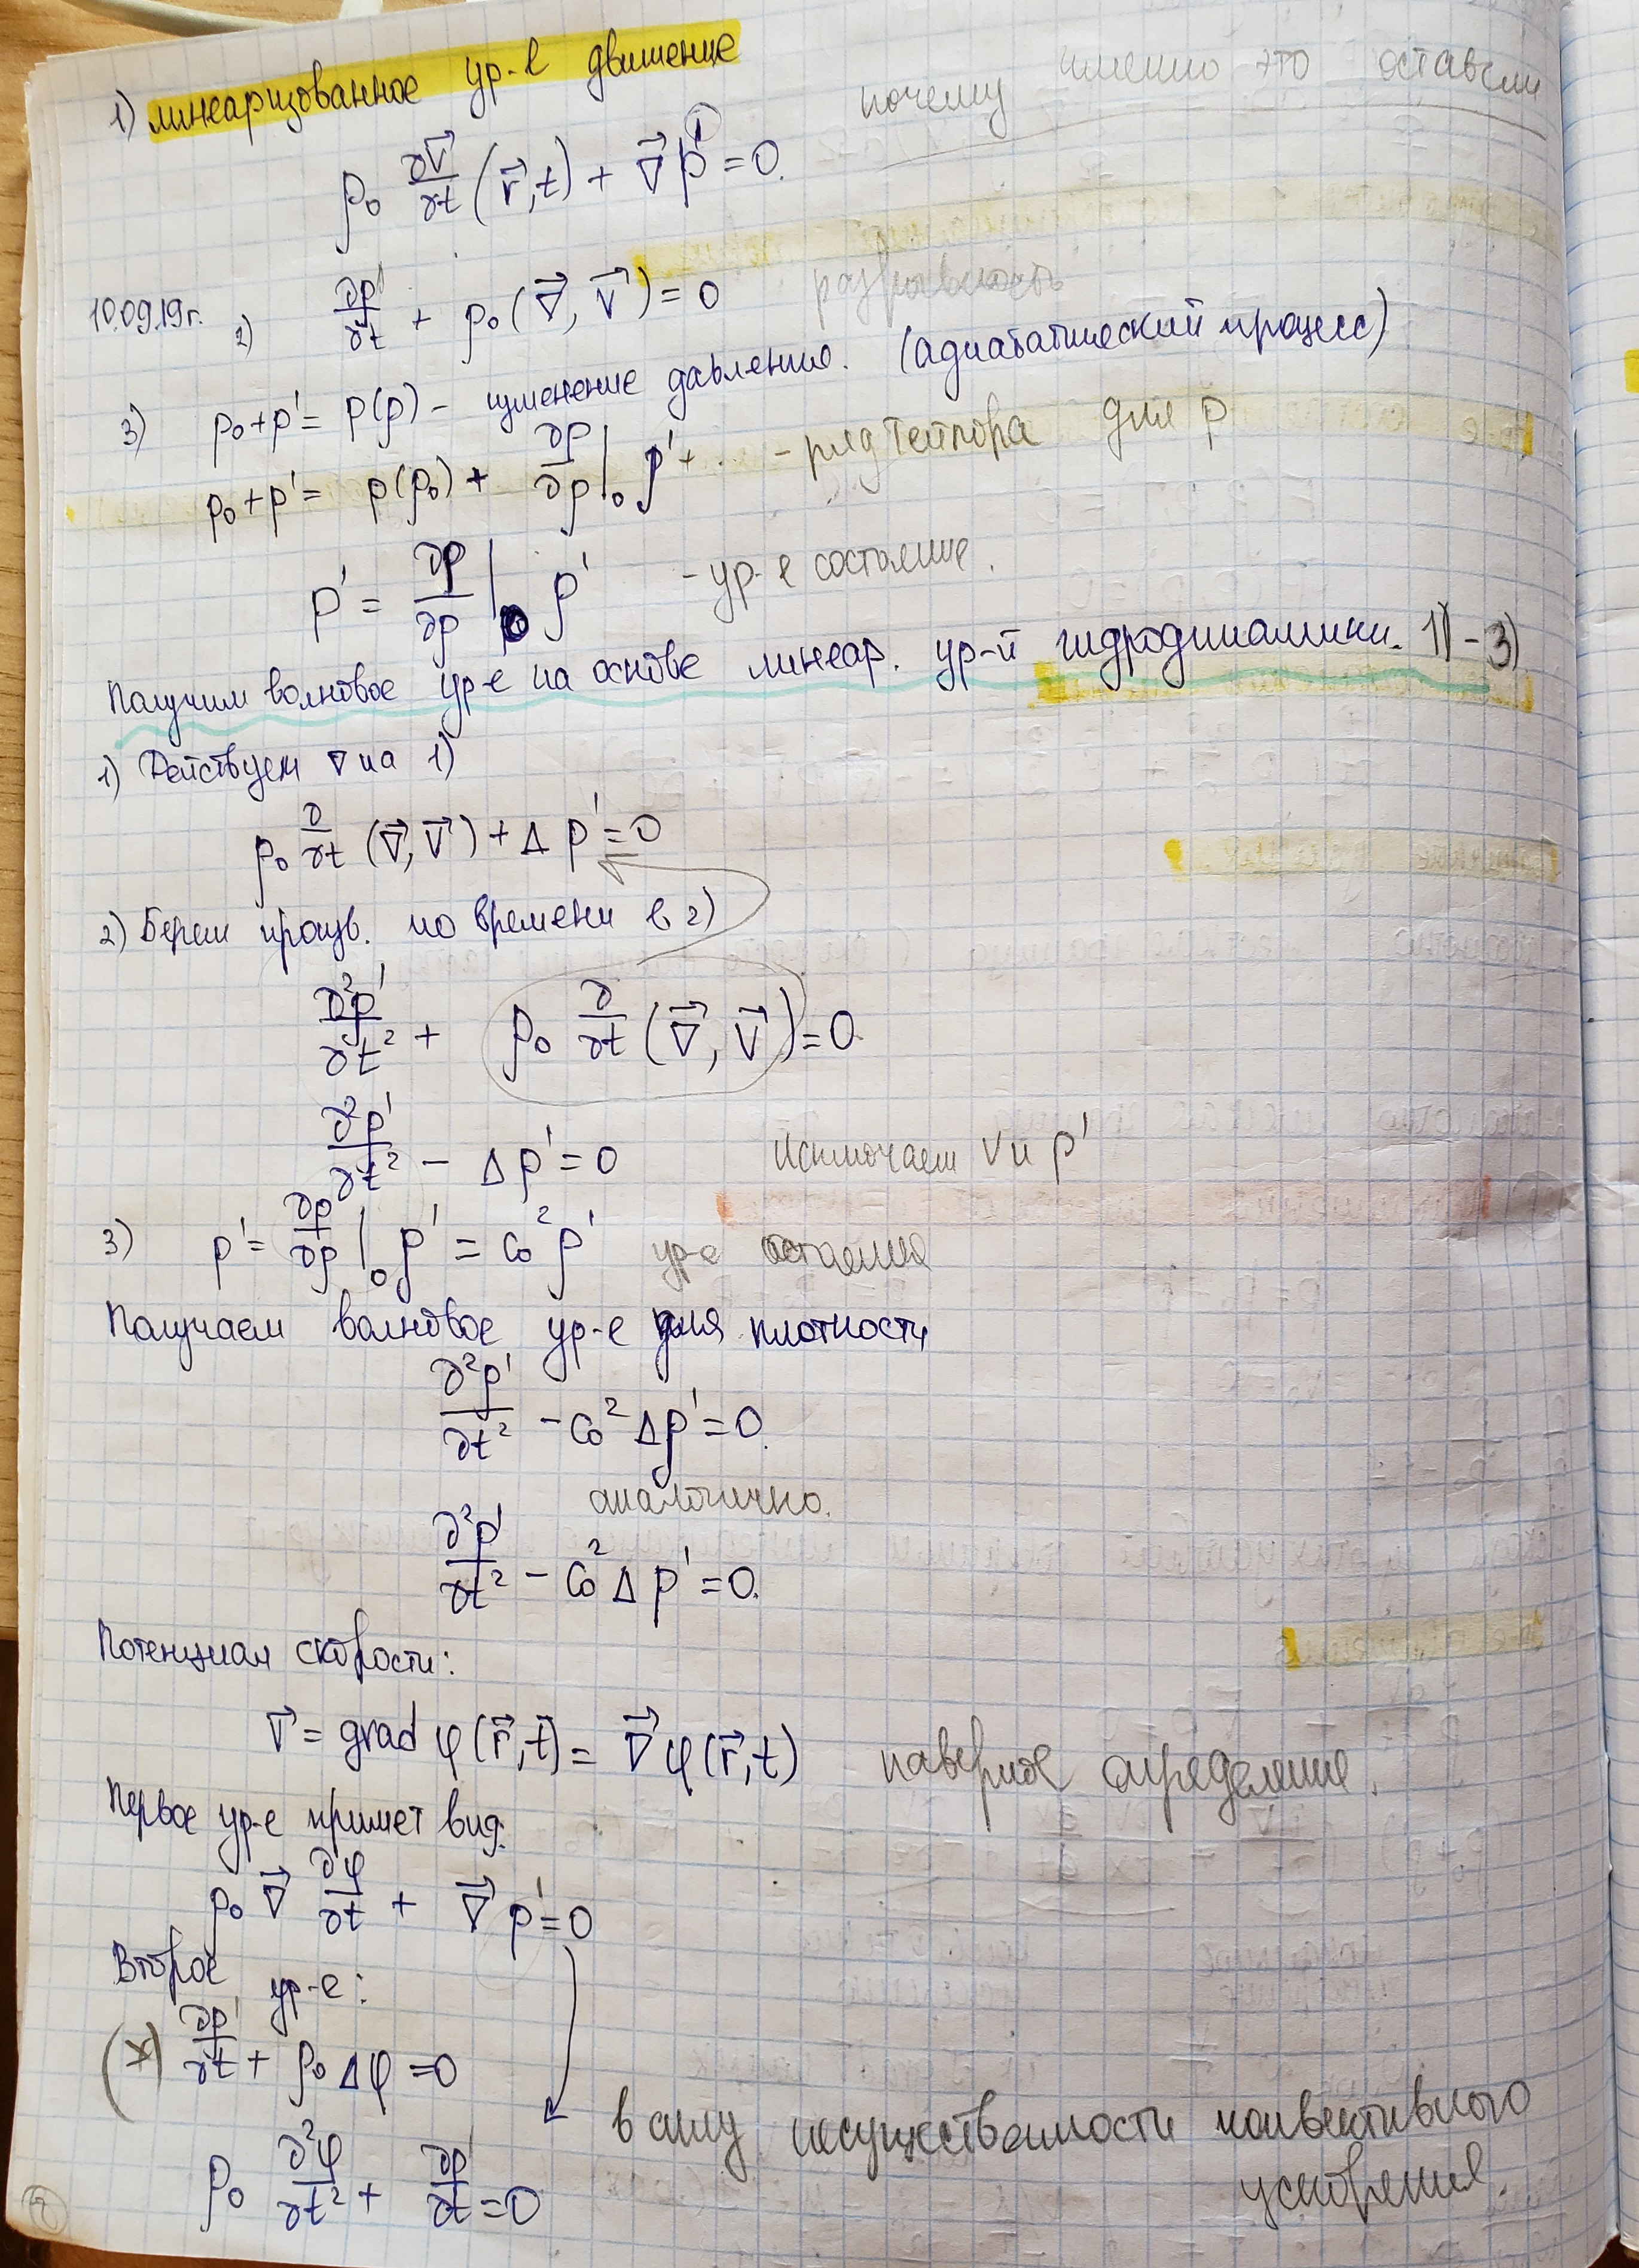 почему именно это оставили
1) линеаризованное ур-е движение
ρ₀ ∂v⃗/∂t (r⃗,t) + ∇⃗p' = 0.
10.09.19г. 2) ∂ρ'/∂t + ρ₀(∇⃗, v⃗) = 0 разрывность
3) p₀+p' = p(ρ) – изменение давления. (адиабатический процесс)
p₀+p' = p(ρ₀) + ∂p/∂ρ|₀ ρ'+... – ряд Тейлора для p
p' = ∂p/∂ρ|₀ ρ' – ур-е состояние.
Получим волновое ур-е на основе линеар. ур-й гидродинамики. 1) – 3)
1) Действуем ∇ на 1)
ρ₀ ∂/∂t (∇⃗, v⃗) + Δ p' = 0
2) Берем произв. по времени в 2)
∂²ρ'/∂t² + ρ₀ ∂/∂t (∇⃗, v⃗) = 0
∂²ρ'/∂t² – Δp' = 0 Исключаем v и p'
3) p' = ∂p/∂ρ|₀ ρ' = c₀² ρ' ур-е
Получаем волновое ур-е для плотности
∂²ρ'/∂t² – c₀² Δρ' = 0.
аналогично.
∂²p'/∂t² – c₀² Δp' = 0.
Потенциал скорости:
v⃗ = grad φ(r⃗,t) = ∇⃗φ(r⃗,t) наверное определение.
Первое ур-е примет вид:
ρ₀ ∇⃗ ∂φ/∂t + ∇⃗ p' = 0
Второе ур-е:
(*) ∂ρ'/∂t + ρ₀ Δφ = 0
в силу несущественности конвективного
ускорения.
ρ₀ ∂²φ/∂t² + ∂p'/∂t = 0